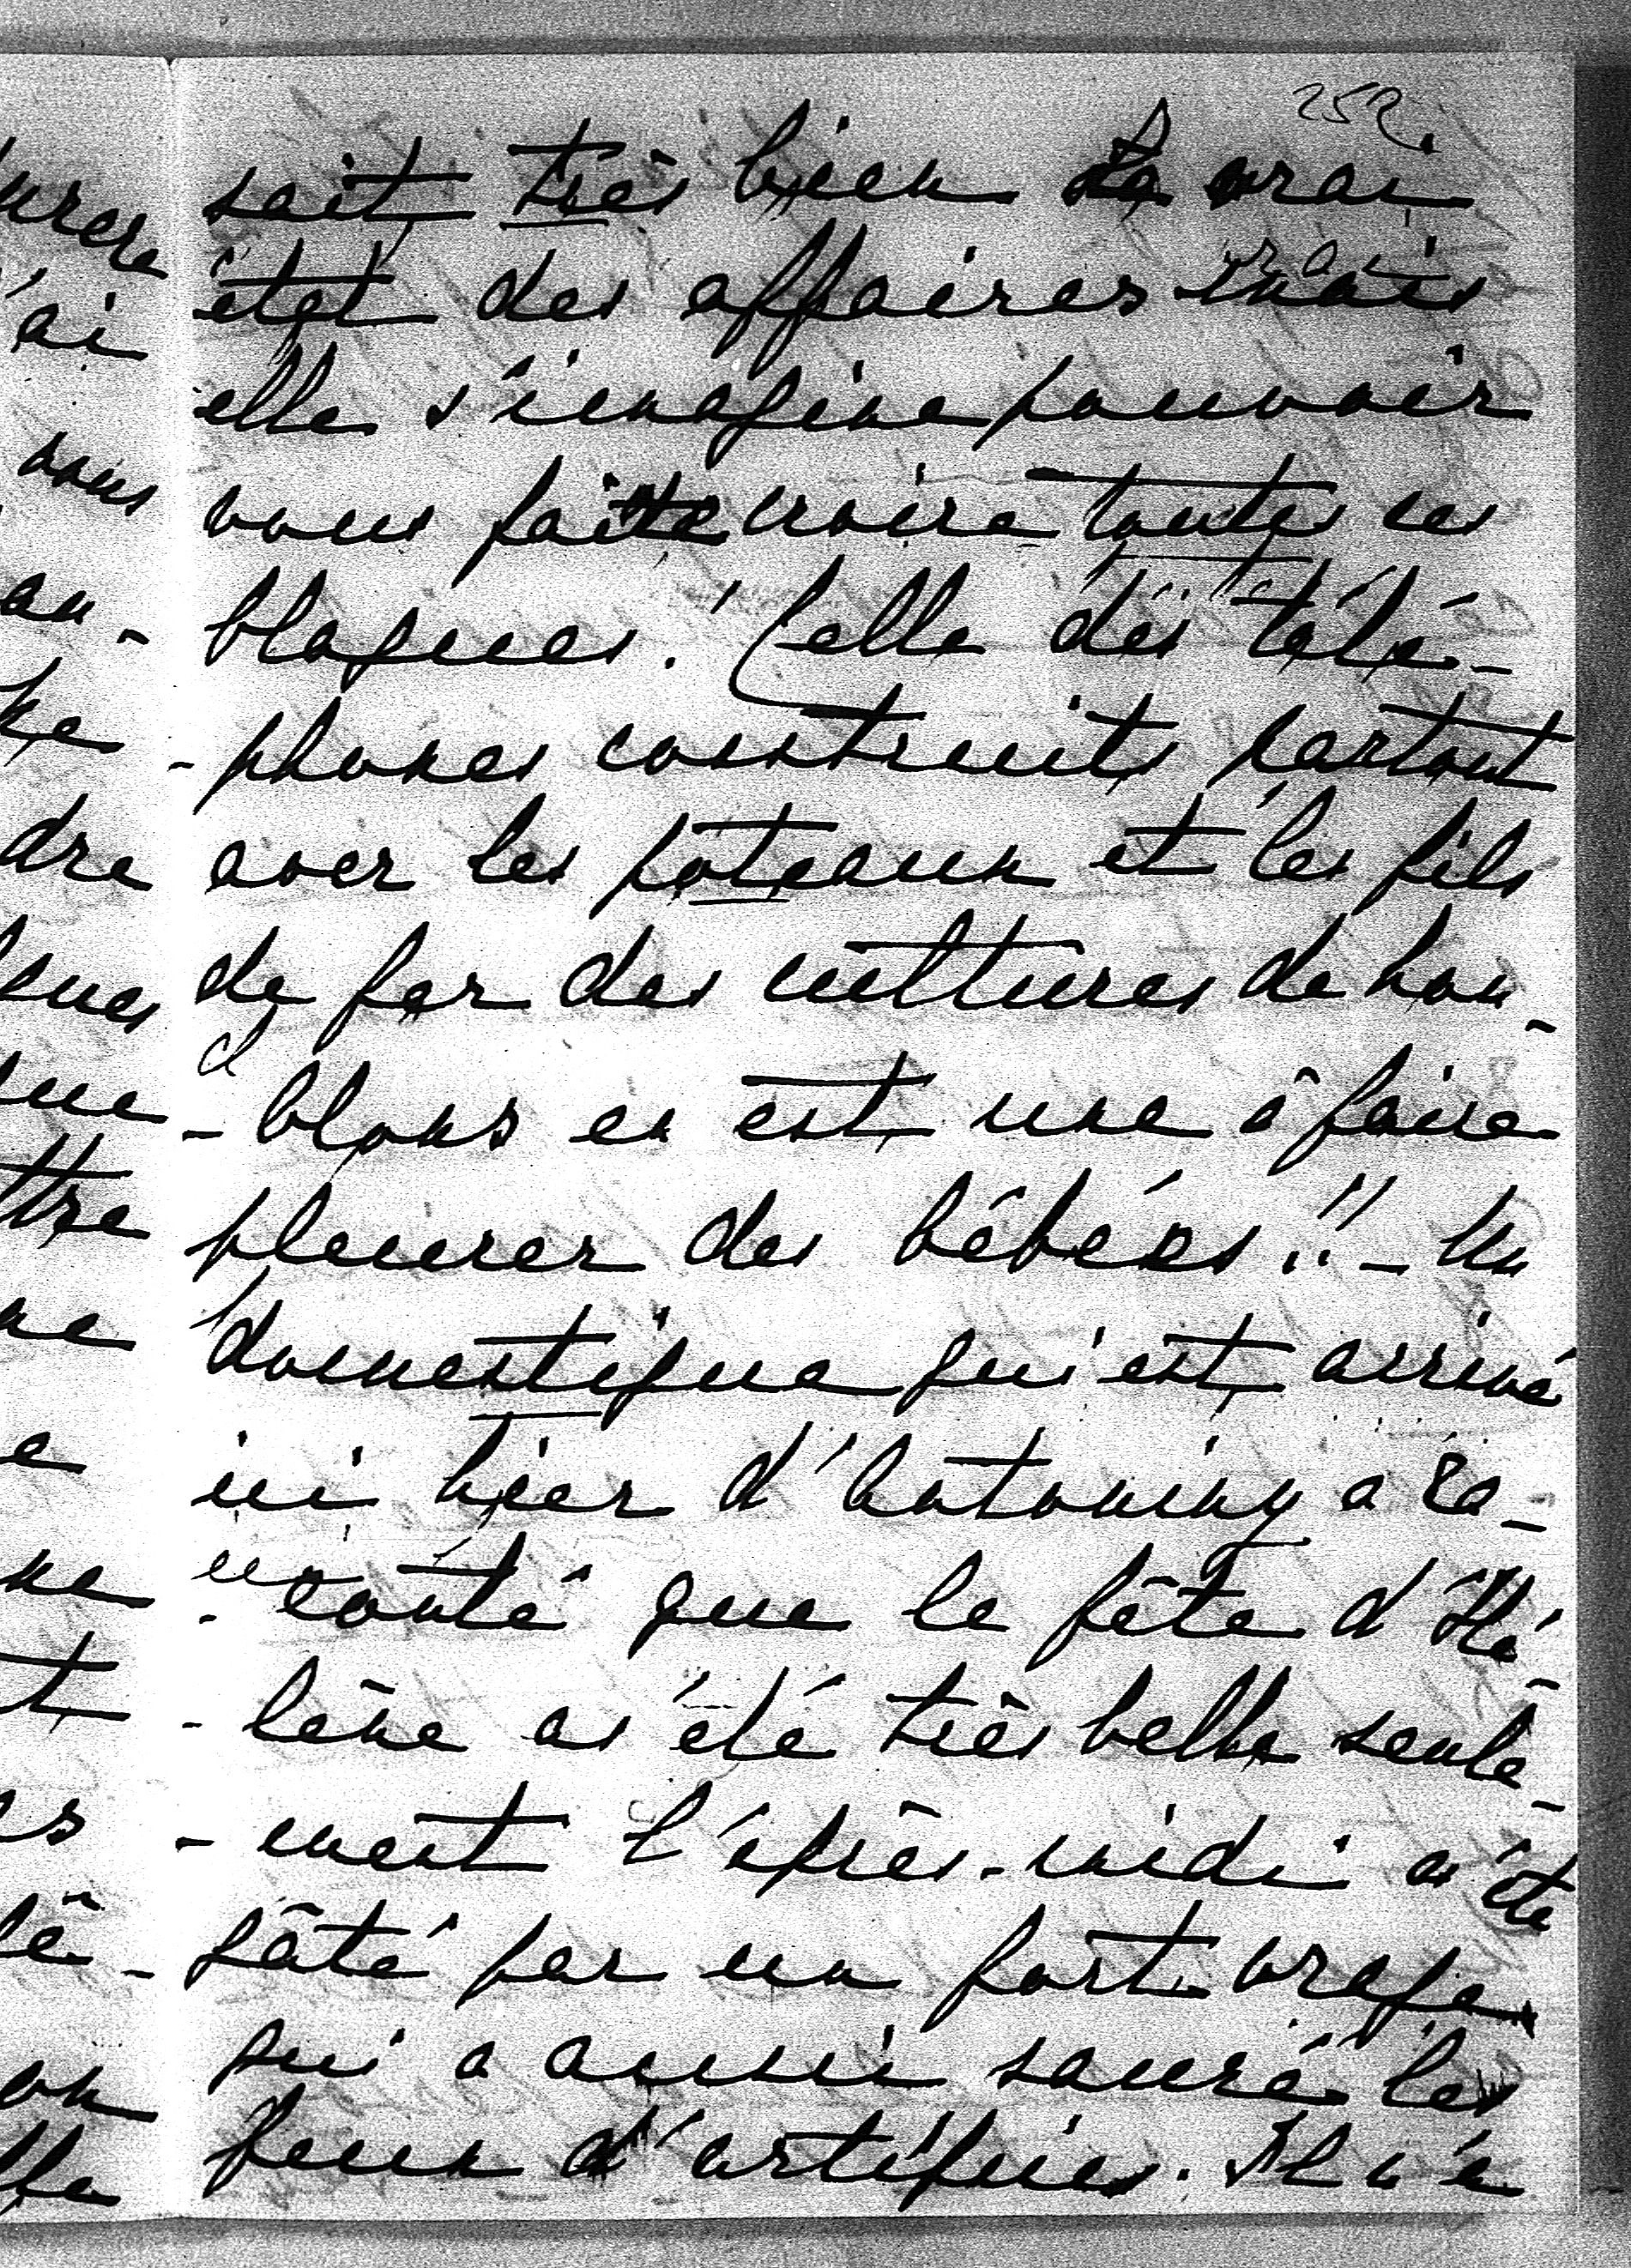 252
sait très bien le vrai
état des affaires mais
elle s'imagine pouvoir
vous faire croire toutes ces
blagues! Celle des télé-
-phones construits partout
avec les poteaux et les fils
de fer des cultures de hou-
-blons en est une à faire
pleurer des bébées!! - Un
domestique qui est arrivé
ici hier d'Antoniny a ra-
-conté que la fête d'Hé-
-lène a été très belle seule-
-ment l'après-midi a été
gâté par un fort orage
qui a aussi sauré les
feux d'artifices. Il n'e